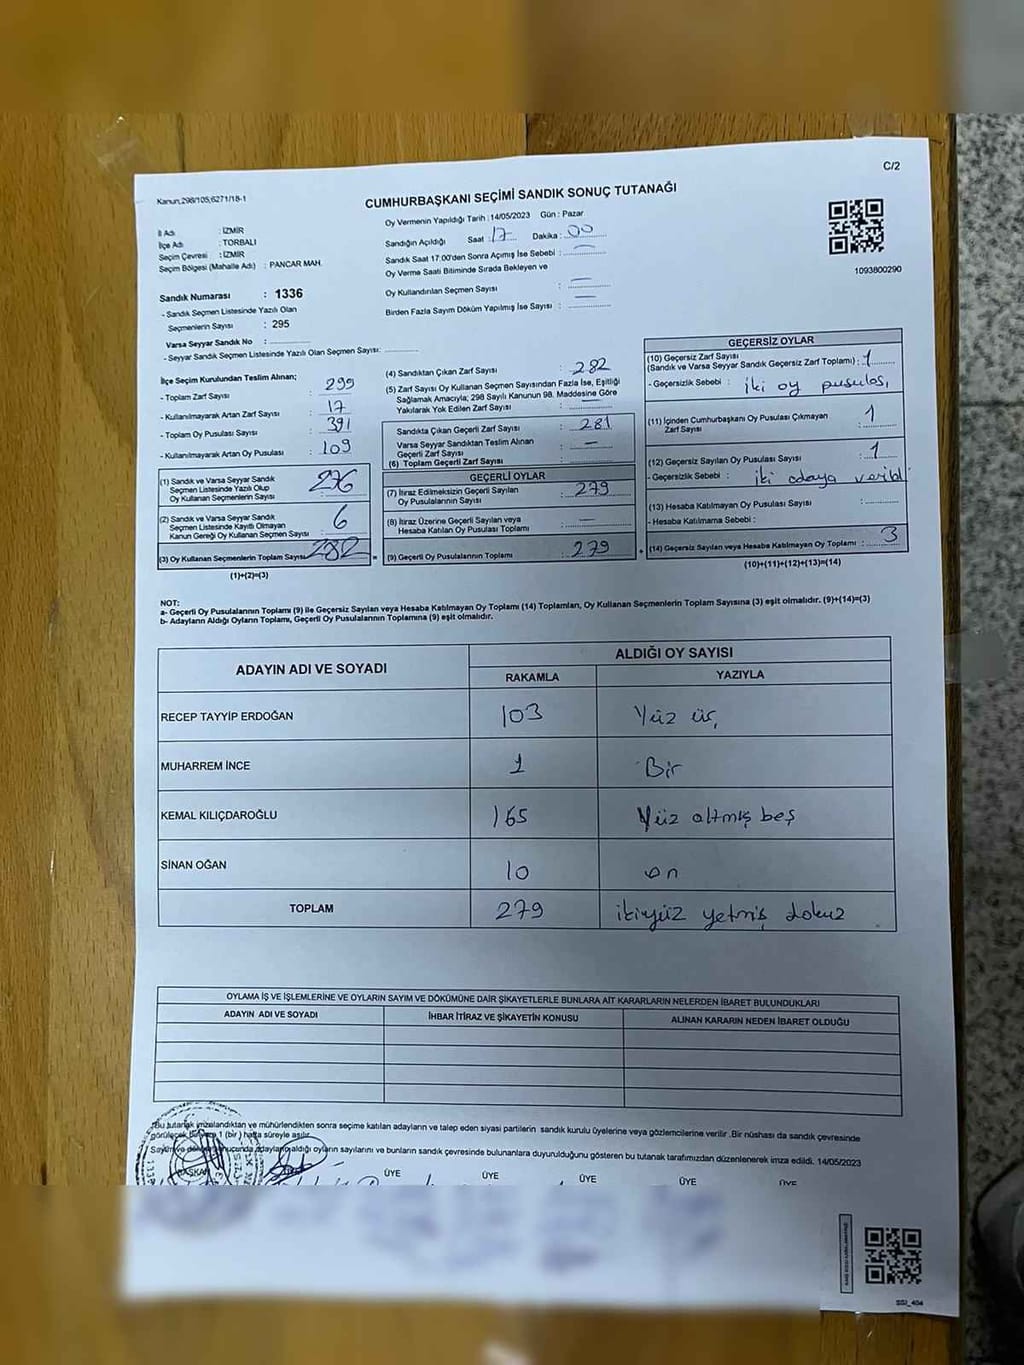 C/2
Kanun;298/105;6271/18-1
CUMHURBAŞKANI SEÇİMİ SANDIK SONUÇ TUTANAĞI
1093800290
İl Adı : İZMİR
İlçe Adı : TORBALI
Seçim Çevresi : İZMİR
Seçim Bölgesi (Mahalle Adı) : PANCAR MAH.
Sandık Numarası : 1336
- Sandık Seçmen Listesinde Yazılı Olan
Seçmenlerin Sayısı : 295
Varsa Seyyar Sandık No :
- Seyyar Sandık Seçmen Listesinde Yazılı Olan Seçmen Sayısı:
Oy Vermenin Yapıldığı Tarih :14/05/2023 Gün : Pazar
Sandığın Açıldığı Saat : 17 Dakika : 00
Sandık Saat 17.00'den Sonra Açılmış İse Sebebi : —
Oy Verme Saati Bitiminde Sırada Bekleyen ve
Oy Kullandırılan Seçmen Sayısı : —
Birden Fazla Sayım Döküm Yapılmış İse Sayısı : —
İlçe Seçim Kurulundan Teslim Alınan;
- Toplam Zarf Sayısı : 299
- Kullanılmayarak Artan Zarf Sayısı : 17
- Toplam Oy Pusulası Sayısı : 391
- Kullanılmayarak Artan Oy Pusulası : 109
(1) Sandık ve Varsa Seyyar Sandık
Seçmen Listesinde Yazılı Olup
Oy Kullanan Seçmenlerin Sayısı : 276
(2) Sandık ve Varsa Seyyar Sandık
Seçmen Listesinde Kayıtlı Olmayan
Kanun Gereği Oy Kullanan Seçmen Sayısı : 6
(3) Oy Kullanan Seçmenlerin Toplam Sayısı : 282
(1)+(2)=(3)
(4) Sandıktan Çıkan Zarf Sayısı : 282
(5) Zarf Sayısı Oy Kullanan Seçmen Sayısından Fazla İse, Eşitliği
Sağlamak Amacıyla; 298 Sayılı Kanunun 98. Maddesine Göre
Yakılarak Yok Edilen Zarf Sayısı : —
Sandıkta Çıkan Geçerli Zarf Sayısı : 281
Varsa Seyyar Sandıktan Teslim Alınan
Geçerli Zarf Sayısı : —
(6) Toplam Geçerli Zarf Sayısı :
GEÇERLİ OYLAR
(7) İtiraz Edilmeksizin Geçerli Sayılan
Oy Pusulasının Sayısı : 279
(8) İtiraz Üzerine Geçerli Sayılan veya
Hesaba Katılan Oy Pusulası Toplamı : —
(9) Geçerli Oy Pusulalarının Toplamı : 279
GEÇERSİZ OYLAR
(10) Geçersiz Zarf Sayısı
(Sandık ve Varsa Seyyar Sandık Geçersiz Zarf Toplamı) : 1
- Geçersizlik Sebebi : iki oy pusulası
(11) İçinden Cumhurbaşkanı Oy Pusulası Çıkmayan
Zarf Sayısı : 1
(12) Geçersiz Sayılan Oy Pusulası Sayısı : 1
- Geçersizlik Sebebi : iki adaya verildi
(13) Hesaba Katılmayan Oy Pusulası Sayısı :
- Hesaba Katılmama Sebebi :
(14) Geçersiz Sayılan veya Hesaba Katılmayan Oy Toplamı : 3
(10)+(11)+(12)+(13)=(14)
NOT:
a- Geçerli Oy Pusulalarının Toplamı (9) ile Geçersiz Sayılan veya Hesaba Katılmayan Oy Toplamı (14) Toplamları, Oy Kullanan Seçmenlerin Toplam Sayısına (3) eşit olmalıdır. (9)+(14)=(3)
b- Adayların Aldığı Oyların Toplamı, Geçerli Oy Pusulalarının Toplamına (9) eşit olmalıdır.
ADAYIN ADI VE SOYADI ALDIĞI OY SAYISI
RAKAMLA YAZIYLA
RECEP TAYYİP ERDOĞAN 103 Yüz üç
MUHARREM İNCE 1 Bir
KEMAL KILIÇDAROĞLU 165 Yüz altmış beş
SİNAN OĞAN 10 on
TOPLAM 279 ikiyüz yetmiş dokuz
OYLAMA İŞ VE İŞLEMLERİNE VE OYLARIN SAYIM VE DÖKÜMÜNE DAİR ŞİKAYETLERLE BUNLARA AİT KARARLARIN NELERDEN İBARET BULUNDUKLARI
ADAYIN ADI VE SOYADI İHBAR İTİRAZ VE ŞİKAYETİN KONUSU ALINAN KARARIN NEDEN İBARET OLDUĞU
Bu tutanak imzalandıktan ve mühürlendikten sonra seçime katılan adayların ve talep eden siyasi partilerin sandık kurulu üyelerine veya gözlemcilerine verilir .Bir nüshası da sandık çevresinde
görülecek bir yere 1 (bir ) hafta süreyle asılır.
Sayım ve döküm sonucunda adayların aldığı oyların sayılarını ve bunların sandık çevresinde bulunanlara duyurulduğunu gösteren bu tutanak tarafımızdan düzenlenerek imza edildi. 14/05/2023
BAŞKAN ÜYE ÜYE ÜYE ÜYE ÜYE
SSI_404